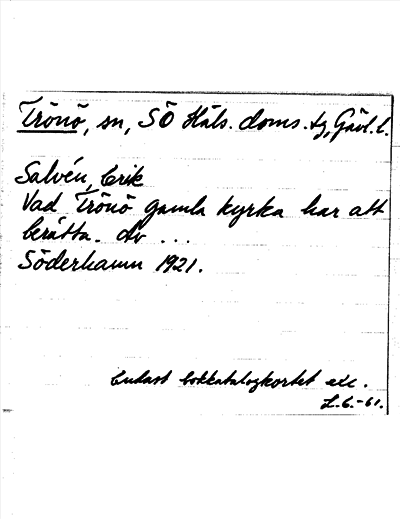 Trönö, sn, SÖ Häls. doms. tg, Gävl. l.
Salvén, Erik
Vad Trönö gamla kyrka har att
berätta. Av ...
Söderhamn 1921.
Endast bokkatalogkortet exc.
L.E.-61.